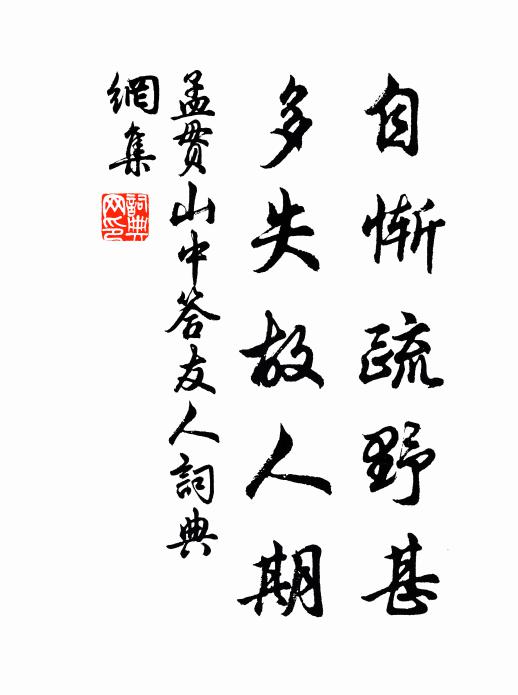 自慚疏野甚
多失故人期
孟貫山中答友人詞典
網集
詞典網印